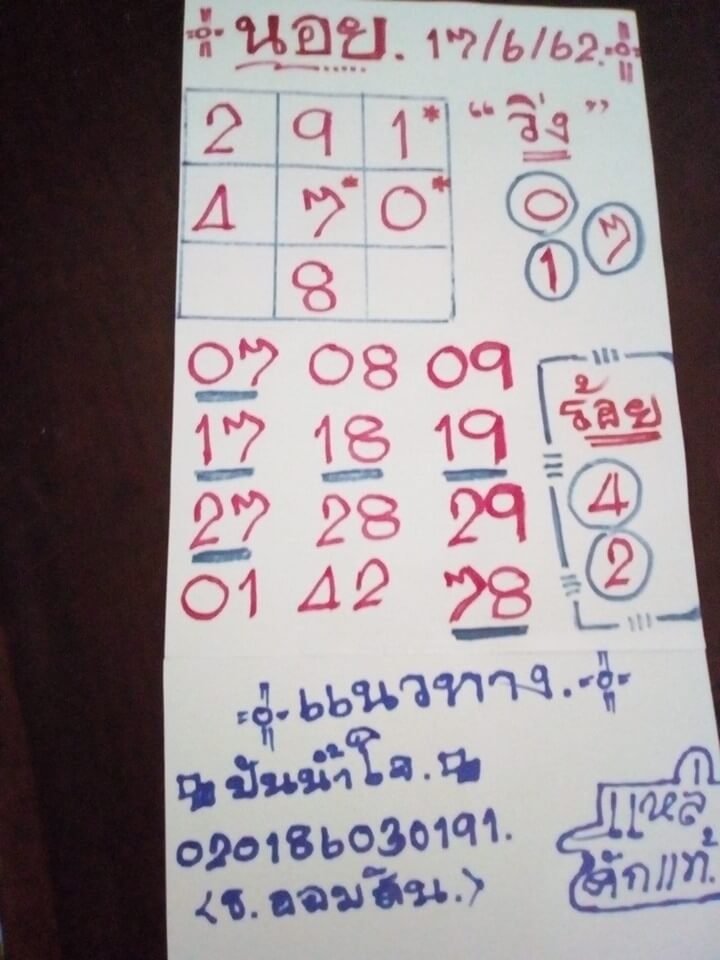 นอย. 17/6/62.
2 9 1*
"วิ่ง"
4 7* 0*
0 7
1
8
07 08 09
ร้อย
17 18 19
4
27 28 29
2
01 42 78
แนวทาง.
ปันน้ำใจ.
020186030191.
<ธ. ออมสิน.>
แหล่
ดักแท้.